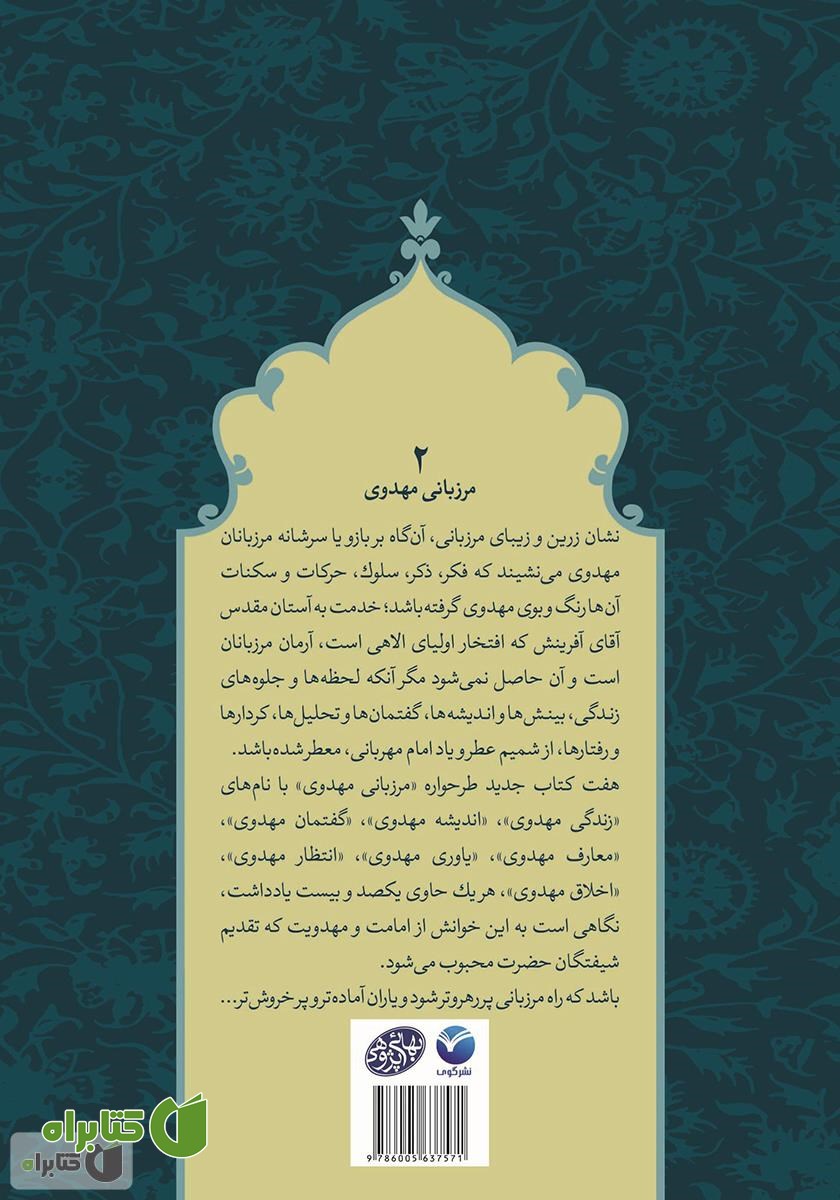 ۲
مرزبانی مهدوی
نشان زرین و زیبای مرزبانی، آن‌گاه بر بازو یا سرشانه مرزبانان
مهدوی می‌نشیند که فکر، ذکر، سلوك، حرکات و سکنات
آن‌ها رنگ و بوی مهدوی گرفته باشد؛ خدمت به آستان مقدس
آقای آفرینش که افتخار اولیای الاهی است، آرمان مرزبانان
است و آن حاصل نمی‌شود مگر آنکه لحظه‌ها و جلوه‌های
زندگی، بینش‌ها و اندیشه‌ها، گفتمان‌ها و تحلیل‌ها، کردارها
و رفتارها، از شمیم عطر و یاد امام مهربانی، معطر شده باشد.
هفت کتاب جدید طرحواره «مرزبانی مهدوی» با نام‌های
«زندگی مهدوی»، «اندیشه مهدوی»، «گفتمان مهدوی»،
«معارف مهدوی»، «یاوری مهدوی»، «انتظار مهدوی»،
«اخلاق مهدوی»، هر یك حاوی یکصد و بیست یادداشت،
نگاهی است به این خوانش از امامت و مهدویت که تقدیم
شیفتگان حضرت محبوب می‌شود.
باشد که راه مرزبانی پررهروتر شود و یاران آماده‌تر و پرخروش‌تر...
بهائی پژوهی
نشر گوی
9 786005 637571
کتابراه
کتابراه